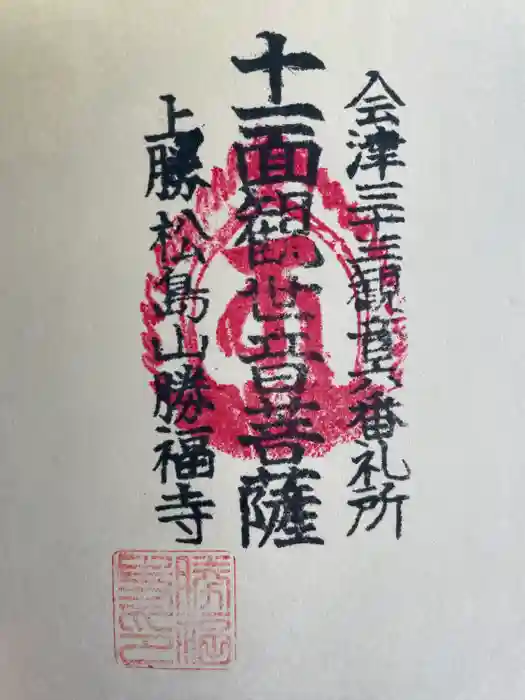 会津三十三観音六番礼所
十一面観世音菩薩
上勝 松島山勝福寺